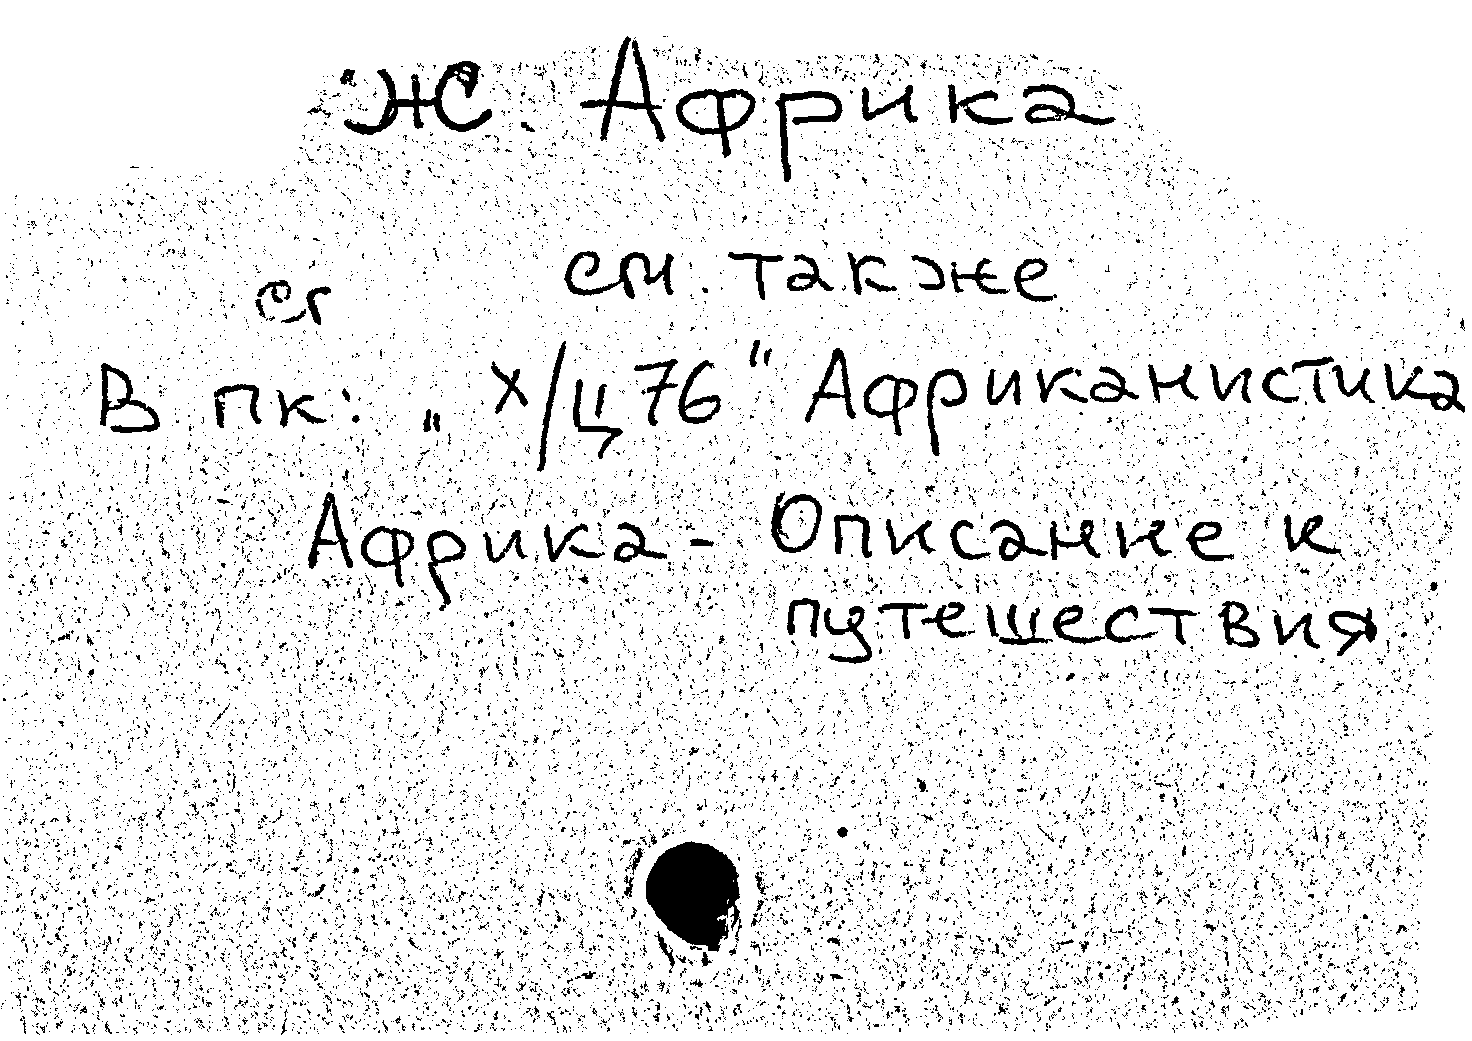 Ж. Африка
см. также
ег
В пк: „ х/ц76 " Африканистика
Африка - Описание и
путешествия